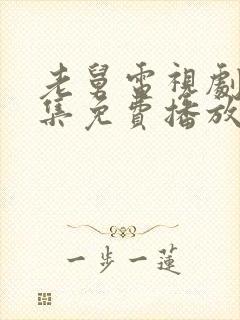 老舅電視劇
集免費播放
一步一蓮